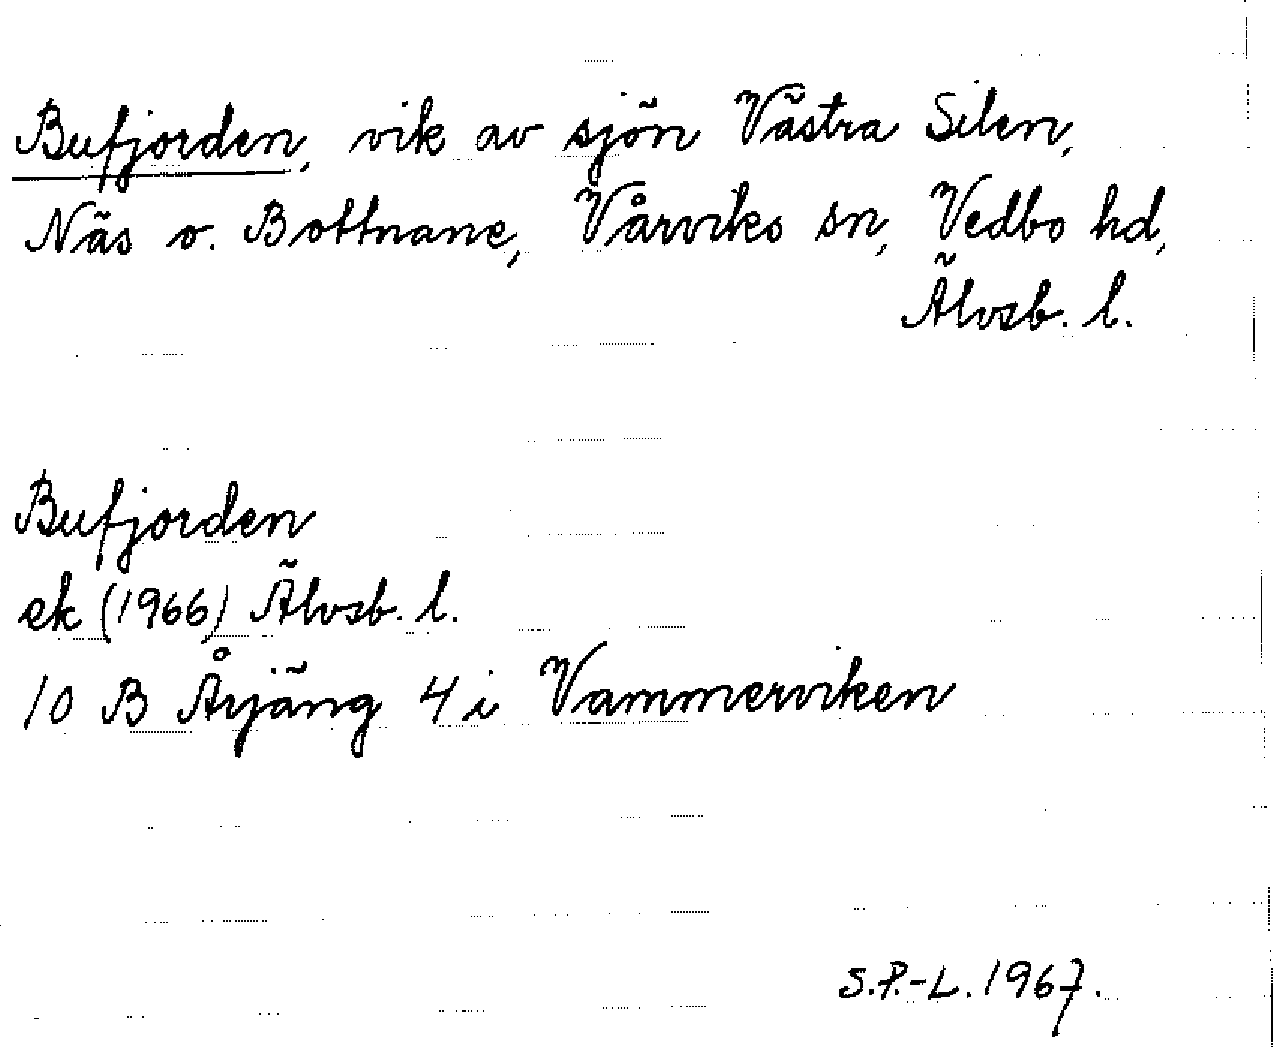 Bufjorden, vik av sjön Västra Silen,
Näs o. Bottnane, Vårviks sn, Vedbo hd,
Älvsb. l.
Bufjorden
ek (1966) Älvsb. l.
10 B Årjäng 4 i Vammerviken
S.P.-L. 1967.